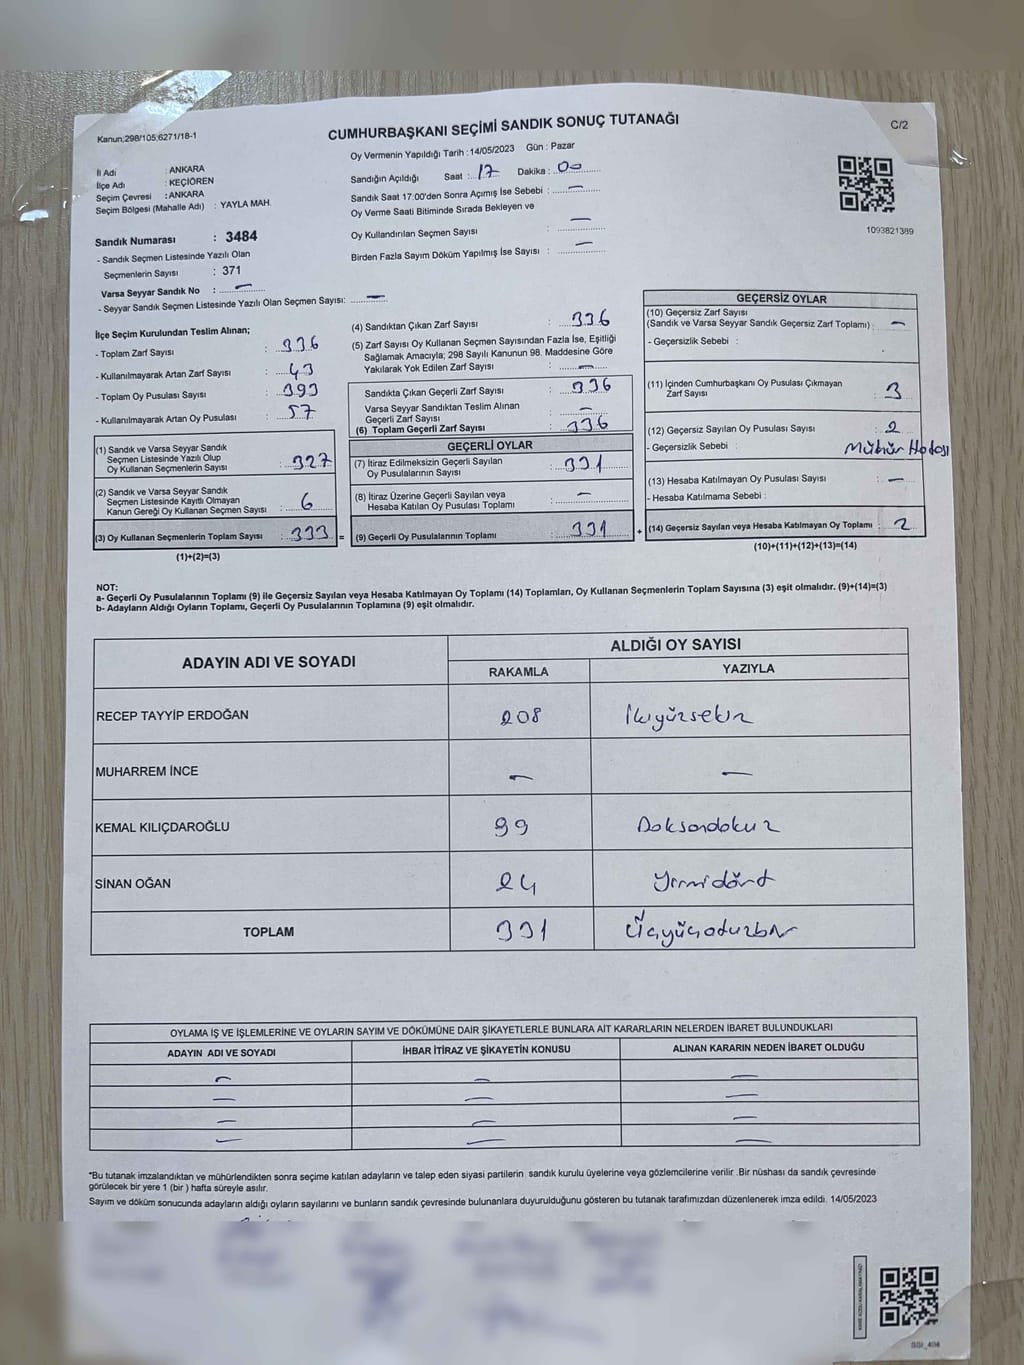 Kanun;298/105,6271/18-1
CUMHURBAŞKANI SEÇİMİ SANDIK SONUÇ TUTANAĞI
C/2
İl Adı : ANKARA
İlçe Adı : KEÇİÖREN
Seçim Çevresi : ANKARA
Seçim Bölgesi (Mahalle Adı) : YAYLA MAH.
Oy Vermenin Yapıldığı Tarih : 14/05/2023 Gün : Pazar
Sandığın Açıldığı Saat : 17 Dakika : 00
Sandık Saat 17:00'den Sonra Açımış İse Sebebi : —
Oy Verme Saati Bitiminde Sırada Bekleyen ve
Oy Kullandırılan Seçmen Sayısı : —
Birden Fazla Sayım Döküm Yapılmış İse Sayısı : —
1093821389
Sandık Numarası : 3484
- Sandık Seçmen Listesinde Yazılı Olan
Seçmenlerin Sayısı : 371
Varsa Seyyar Sandık No : —
- Seyyar Sandık Seçmen Listesinde Yazılı Olan Seçmen Sayısı: —
İlçe Seçim Kurulundan Teslim Alınan;
- Toplam Zarf Sayısı : 336
- Kullanılmayarak Artan Zarf Sayısı : 43
- Toplam Oy Pusulası Sayısı : 393
- Kullanılmayarak Artan Oy Pusulası : 57
(1) Sandık ve Varsa Seyyar Sandık
Seçmen Listesinde Yazılı Olup
Oy Kullanan Seçmenlerin Sayısı : 327
(2) Sandık ve Varsa Seyyar Sandık
Seçmen Listesinde Kayıtlı Olmayan
Kanun Gereği Oy Kullanan Seçmen Sayısı : 6
(3) Oy Kullanan Seçmenlerin Toplam Sayısı : 333 =
(1)+(2)=(3)
(4) Sandıktan Çıkan Zarf Sayısı : 336
(5) Zarf Sayısı Oy Kullanan Seçmen Sayısından Fazla İse, Eşitliği
Sağlamak Amacıyla; 298 Sayılı Kanunun 98. Maddesine Göre
Yakılarak Yok Edilen Zarf Sayısı : —
Sandıkta Çıkan Geçerli Zarf Sayısı : 336
Varsa Seyyar Sandıktan Teslim Alınan
Geçerli Zarf Sayısı : —
(6) Toplam Geçerli Zarf Sayısı : 336
GEÇERLİ OYLAR
(7) İtiraz Edilmeksizin Geçerli Sayılan
Oy Pusulalarının Sayısı : 331
(8) İtiraz Üzerine Geçerli Sayılan veya
Hesaba Katılan Oy Pusulası Toplamı : —
(9) Geçerli Oy Pusulalarının Toplamı : 331 +
GEÇERSİZ OYLAR
(10) Geçersiz Zarf Sayısı
(Sandık ve Varsa Seyyar Sandık Geçersiz Zarf Toplamı) : —
- Geçersizlik Sebebi :
(11) İçinden Cumhurbaşkanı Oy Pusulası Çıkmayan
Zarf Sayısı : 3
(12) Geçersiz Sayılan Oy Pusulası Sayısı : 2
- Geçersizlik Sebebi : Mühür Hatası
(13) Hesaba Katılmayan Oy Pusulası Sayısı : —
- Hesaba Katılmama Sebebi :
(14) Geçersiz Sayılan veya Hesaba Katılmayan Oy Toplamı : 2
(10)+(11)+(12)+(13)=(14)
NOT:
a- Geçerli Oy Pusulalarının Toplamı (9) ile Geçersiz Sayılan veya Hesaba Katılmayan Oy Toplamı (14) Toplamları, Oy Kullanan Seçmenlerin Toplam Sayısına (3) eşit olmalıdır. (9)+(14)=(3)
b- Adayların Aldığı Oyların Toplamı, Geçerli Oy Pusulalarının Toplamına (9) eşit olmalıdır.
ADAYIN ADI VE SOYADI
ALDIĞI OY SAYISI
RAKAMLA YAZIYLA
RECEP TAYYİP ERDOĞAN 208 İkiyüzsekiz
MUHARREM İNCE — —
KEMAL KILIÇDAROĞLU 99 Doksandokuz
SİNAN OĞAN 24 Yirmidört
TOPLAM 331 Üçyüzotuzbir
OYLAMA İŞ VE İŞLEMLERİNE VE OYLARIN SAYIM VE DÖKÜMÜNE DAİR ŞİKAYETLERLE BUNLARA AİT KARARLARIN NELERDEN İBARET BULUNDUKLARI
ADAYIN ADI VE SOYADI İHBAR İTİRAZ VE ŞİKAYETİN KONUSU ALINAN KARARIN NEDEN İBARET OLDUĞU
— — —
— — —
— — —
— — —
*Bu tutanak imzalandıktan ve mühürlendikten sonra seçime katılan adayların ve talep eden siyasi partilerin sandık kurulu üyelerine veya gözlemcilerine verilir .Bir nüshası da sandık çevresinde
görülecek bir yere 1 (bir ) hafta süreyle asılır.
Sayım ve döküm sonucunda adayların aldığı oyların sayılarını ve bunların sandık çevresinde bulunanlara duyurulduğunu gösteren bu tutanak tarafımızdan düzenlenerek imza edildi. 14/05/2023